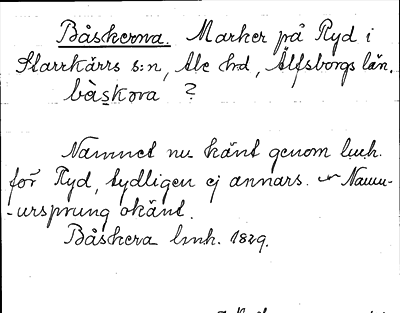 Båskerna. Marker på Ryd i
Starrkärrs s:n, Ale hd, Älfsborgs län.
bås̱kơra ?
Namnet nu känt genom lmh.
för Ryd, tydligen ej annars. Namn-
-ursprung okänt.
Båskera lmh. 1829.